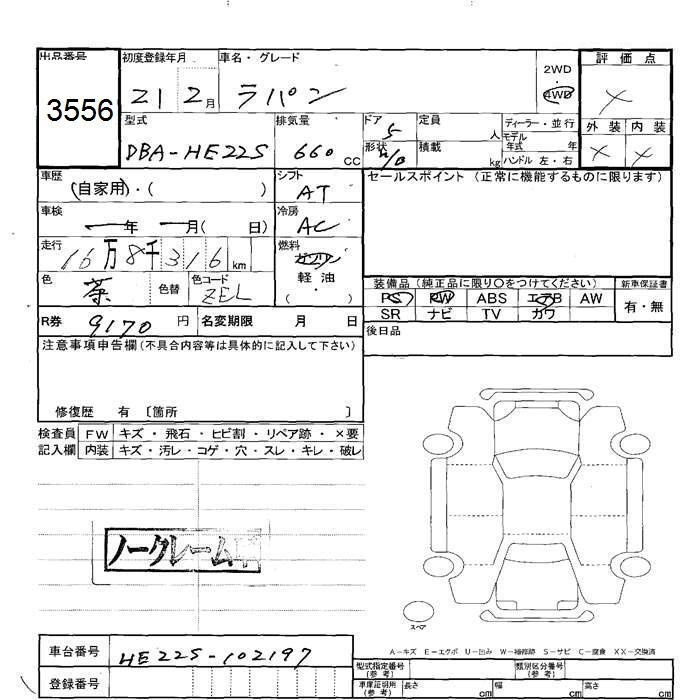 出品番号 初度登録年月 車名・グレード 2WD 評価点
3556 21 2月 ラパン 4WD ×
型式 排気量 ドア 定員 ディーラー・並行 外装 内装
DBA-HE22S 660cc 5 人 モデル年式 年 × ×
形状 H/B 積載 kg ハンドル 左・右
車歴 (自家用)・( ) シフト AT セールスポイント (正常に機能するものに限ります)
車検 一年 一月( 日) 冷房 AC
走行 16万8千316km 燃料 ガソリン
色 茶 色替 色コード ZEL 軽油・( )
装備品 (純正品に限り○をつけてください) 新車保証書
PS PW ABS エアB AW 有・無
SR ナビ TV カワ
R券 9170円 名変期限 月 日 後日品
注意事項申告欄(不具合内容等は具体的に記入して下さい)
修復歴 有 〔箇所 〕
検査員 FW キズ・飛石・ヒビ割・リペア跡・×要
記入欄 内装 キズ・汚レ・コゲ・穴・スレ・キレ・破レ
ノークレーム
スペア
A-キズ E-エクボ U-凹み W-補修跡 S-サビ C-腐食 XX-交換済
車台番号 HE22S-102197
型式指定番号(参考) 類別区分番号(参考)
登録番号 車庫証明用(参考) 長さ cm 幅 cm 高さ cm